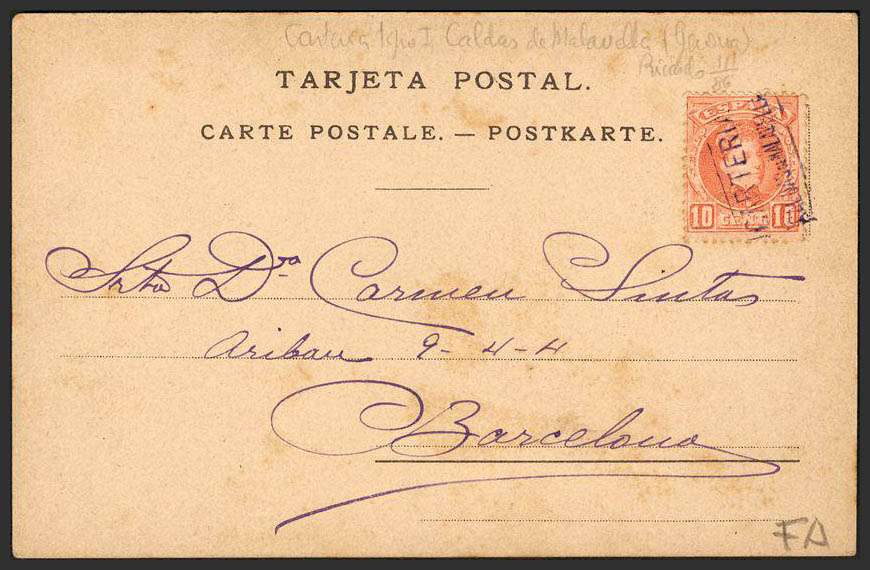 Cartería tipo I Caldas de Malavella (Gerona)
III
86
TARJETA POSTAL.
CARTE POSTALE. — POSTKARTE.
ESPAÑA
10 CENT. 10
CARTERIA
Srta Dª Carmen Sintas
Aribau 9-4-4
Barcelona
FA